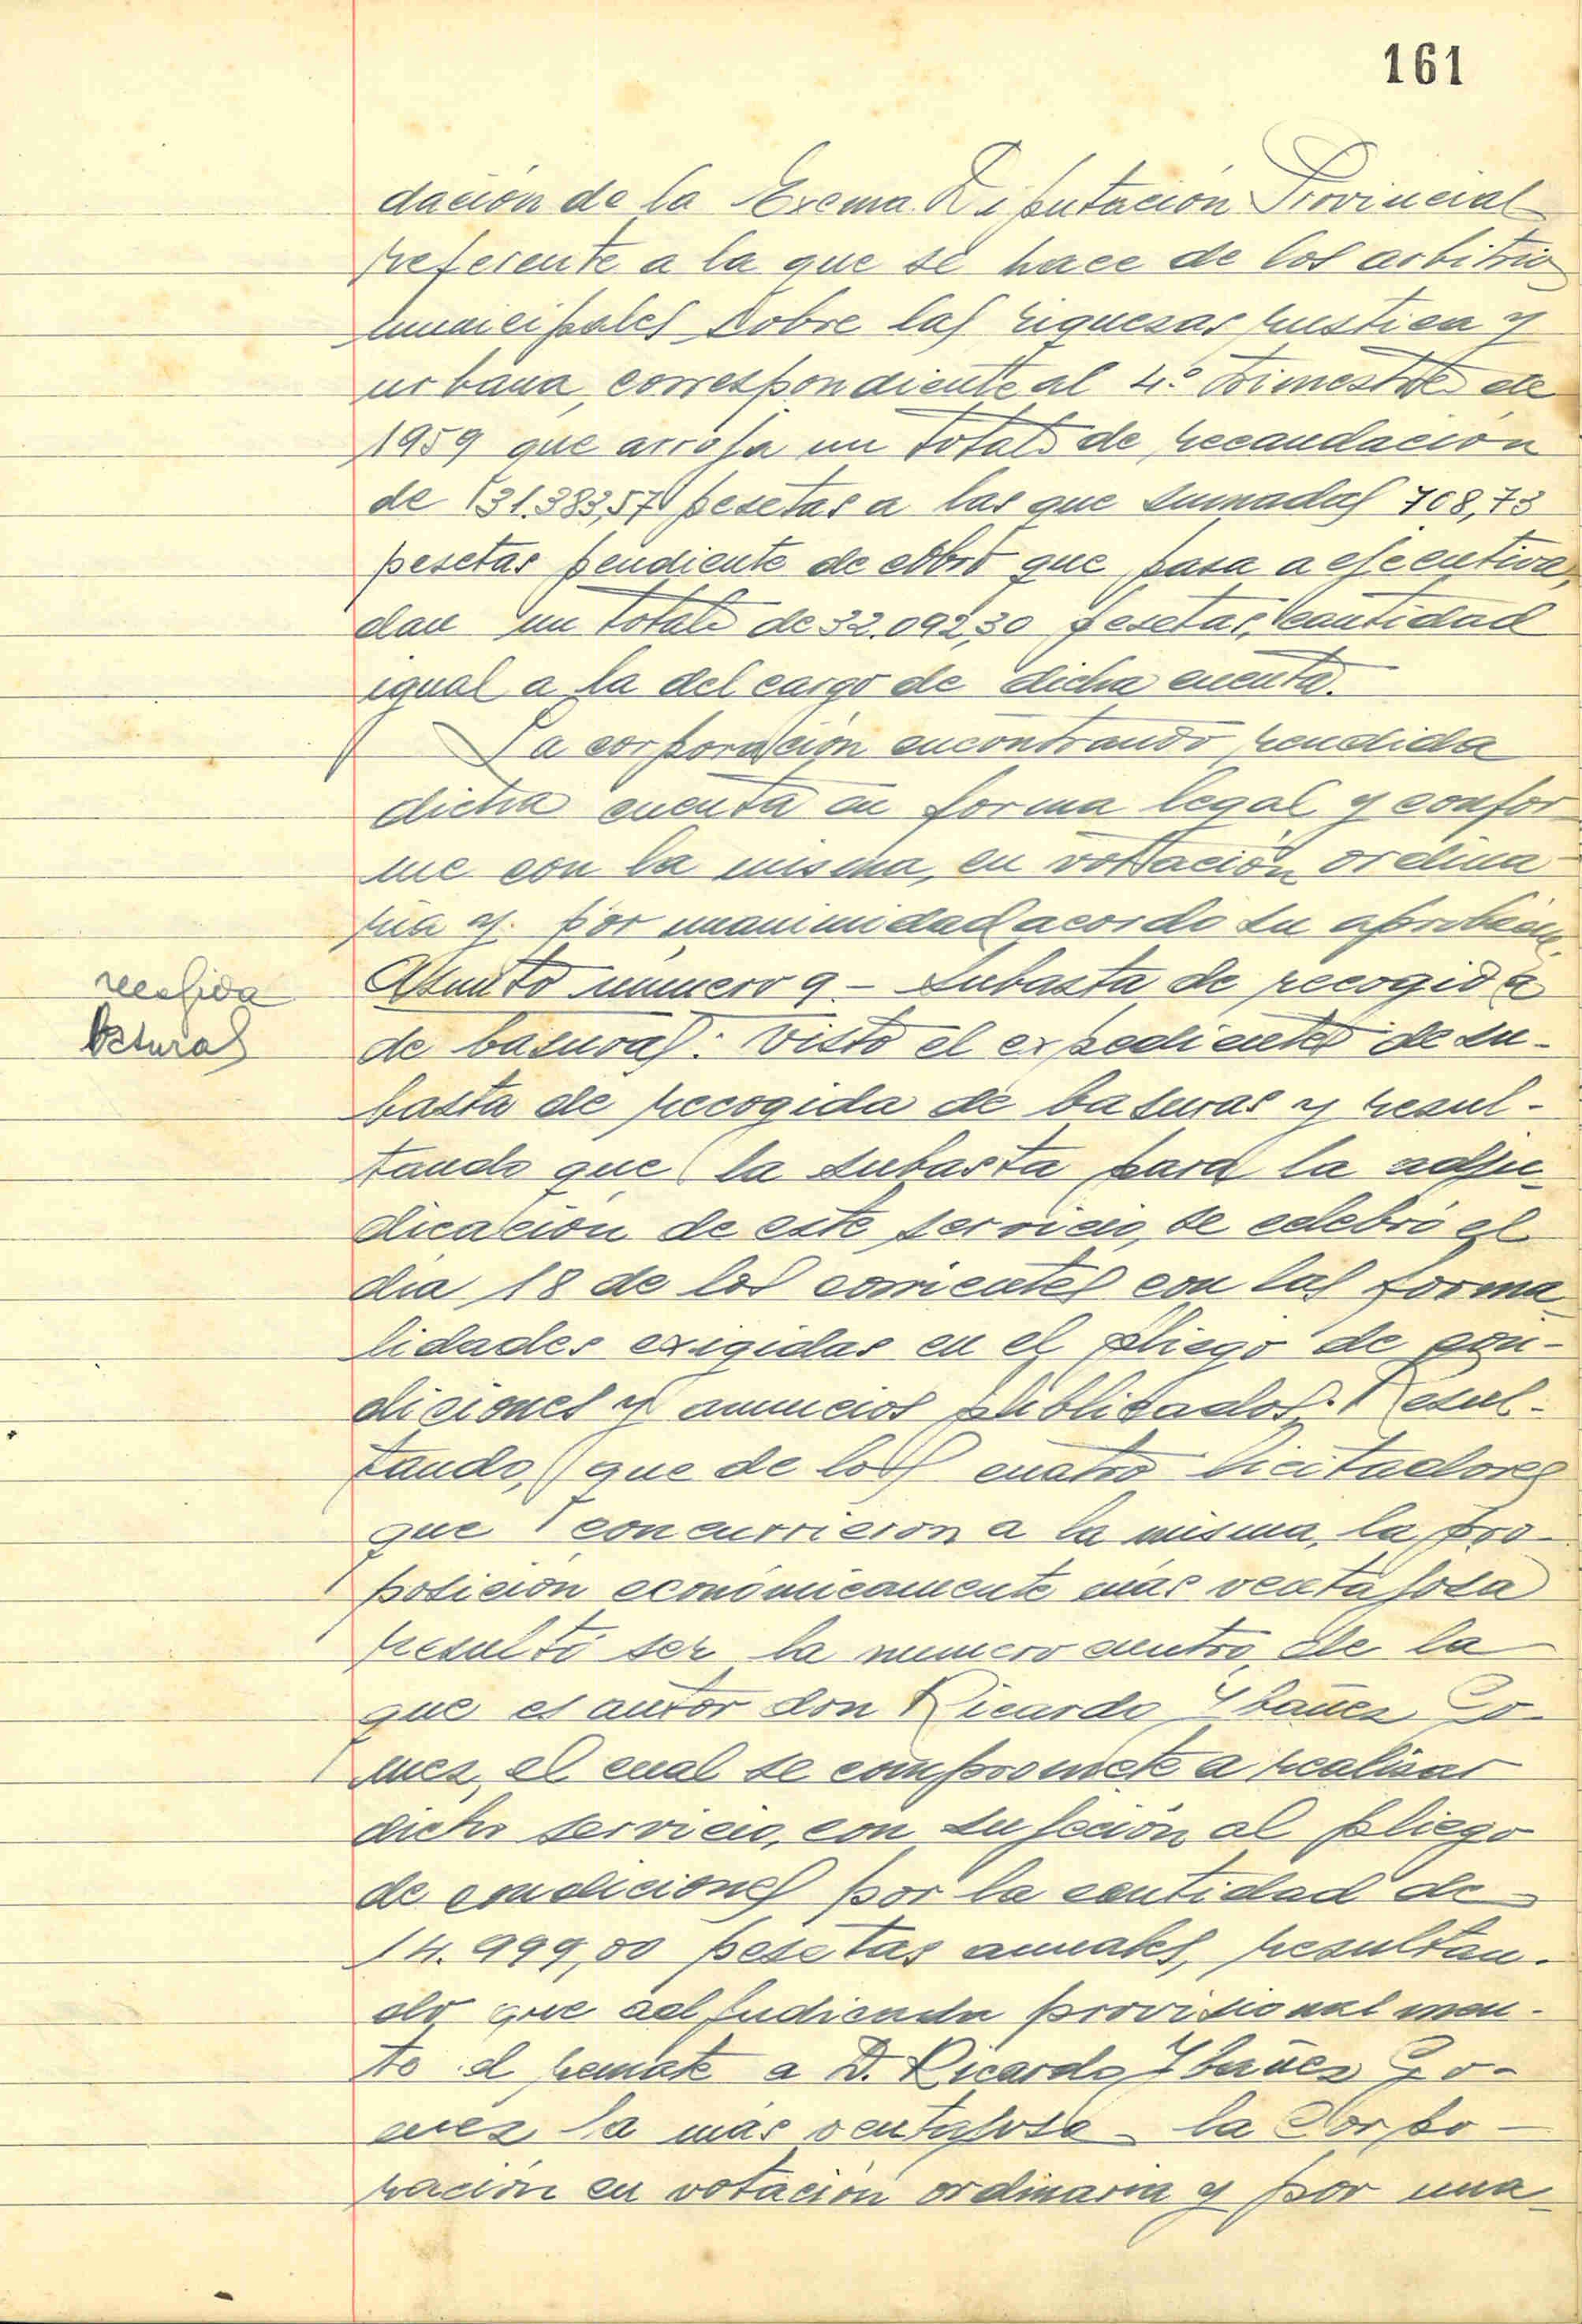 161
dación de la Excma. Diputación Provincial
referente a la que se hace de los arbitrios
municipales sobre las riquezas rustica y
urbana, correspondiente al 4º trimestre de
1959 que arroja un total de recaudación
de 31.383,57 pesetas a las que sumadas 708,73
pesetas pendiente de cobro que pasa a ejecutiva,
dan un total de 32.092,30 pesetas, cantidad
igual a la del cargo de dicha cuenta.
La corporación encontrando rendida
dicha cuenta en forma legal y confor-
me con la misma, en votación ordina-
ria y por unanimidad acordo su aprobación.
Asunto número 9 - Subasta de recogida
recogida
basuras
de basuras: Visto el expediente de su-
basta de recogida de basuras y resul-
tando que la subasta para la adju-
dicación de este servicio, se celebró el
dia 18 de los corrientes con las forma-
lidades exigidas en el pliego de con-
diciones y anuncios publicados. Resul-
tando, que de los cuatro licitadores
que concurrieron a la misma, la pro-
posición económicamente más ventajosa
resultó ser la numero cuatro, de la
que es autor don Ricardo Ybañez Go-
mez, el cual se compromete a realizar
dicho servicio, con sujeción al pliego
de condiciones por la cantidad de
14.999,00 pesetas anuales, resultan-
do que adjudicada provisionalmen-
te el remate a D. Ricardo Ybañez Go-
mez la más ventajosa, la Corpo-
ración en votación ordinaria y por una-